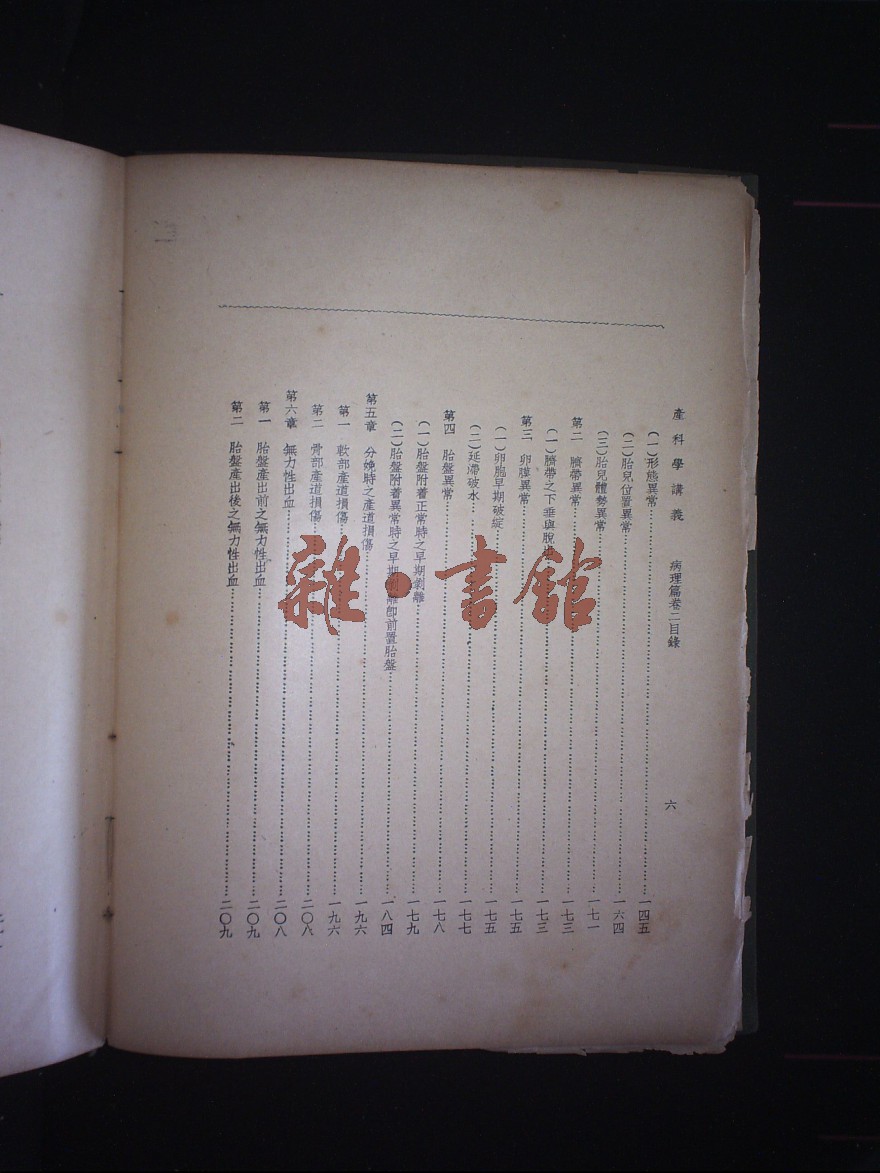 產科學講義 病理篇卷二目錄 六
(一)形態異常……一四五
(二)胎兒位置異常……一六四
(三)胎兒體勢異常……一七一
第二 臍帶異常……一七三
(一)臍帶之下垂與脫……一七三
第三 卵膜異常……一七五
(一)卵胞早期破綻……一七五
(二)延滯破水……一七七
第四 胎盤異常……一七八
(一)胎盤附着正常時之早期剝離……一七九
(二)胎盤附着異常時之早期剝離卽前置胎盤……一八四
第五章 分娩時之產道損傷……一九六
第一 軟部產道損傷……一九六
第二 骨部產道損傷……二〇八
第六章 無力性出血……二〇八
第一 胎盤產出前之無力性出血……二〇九
第二 胎盤產出後之無力性出血……二〇九
雜·書館